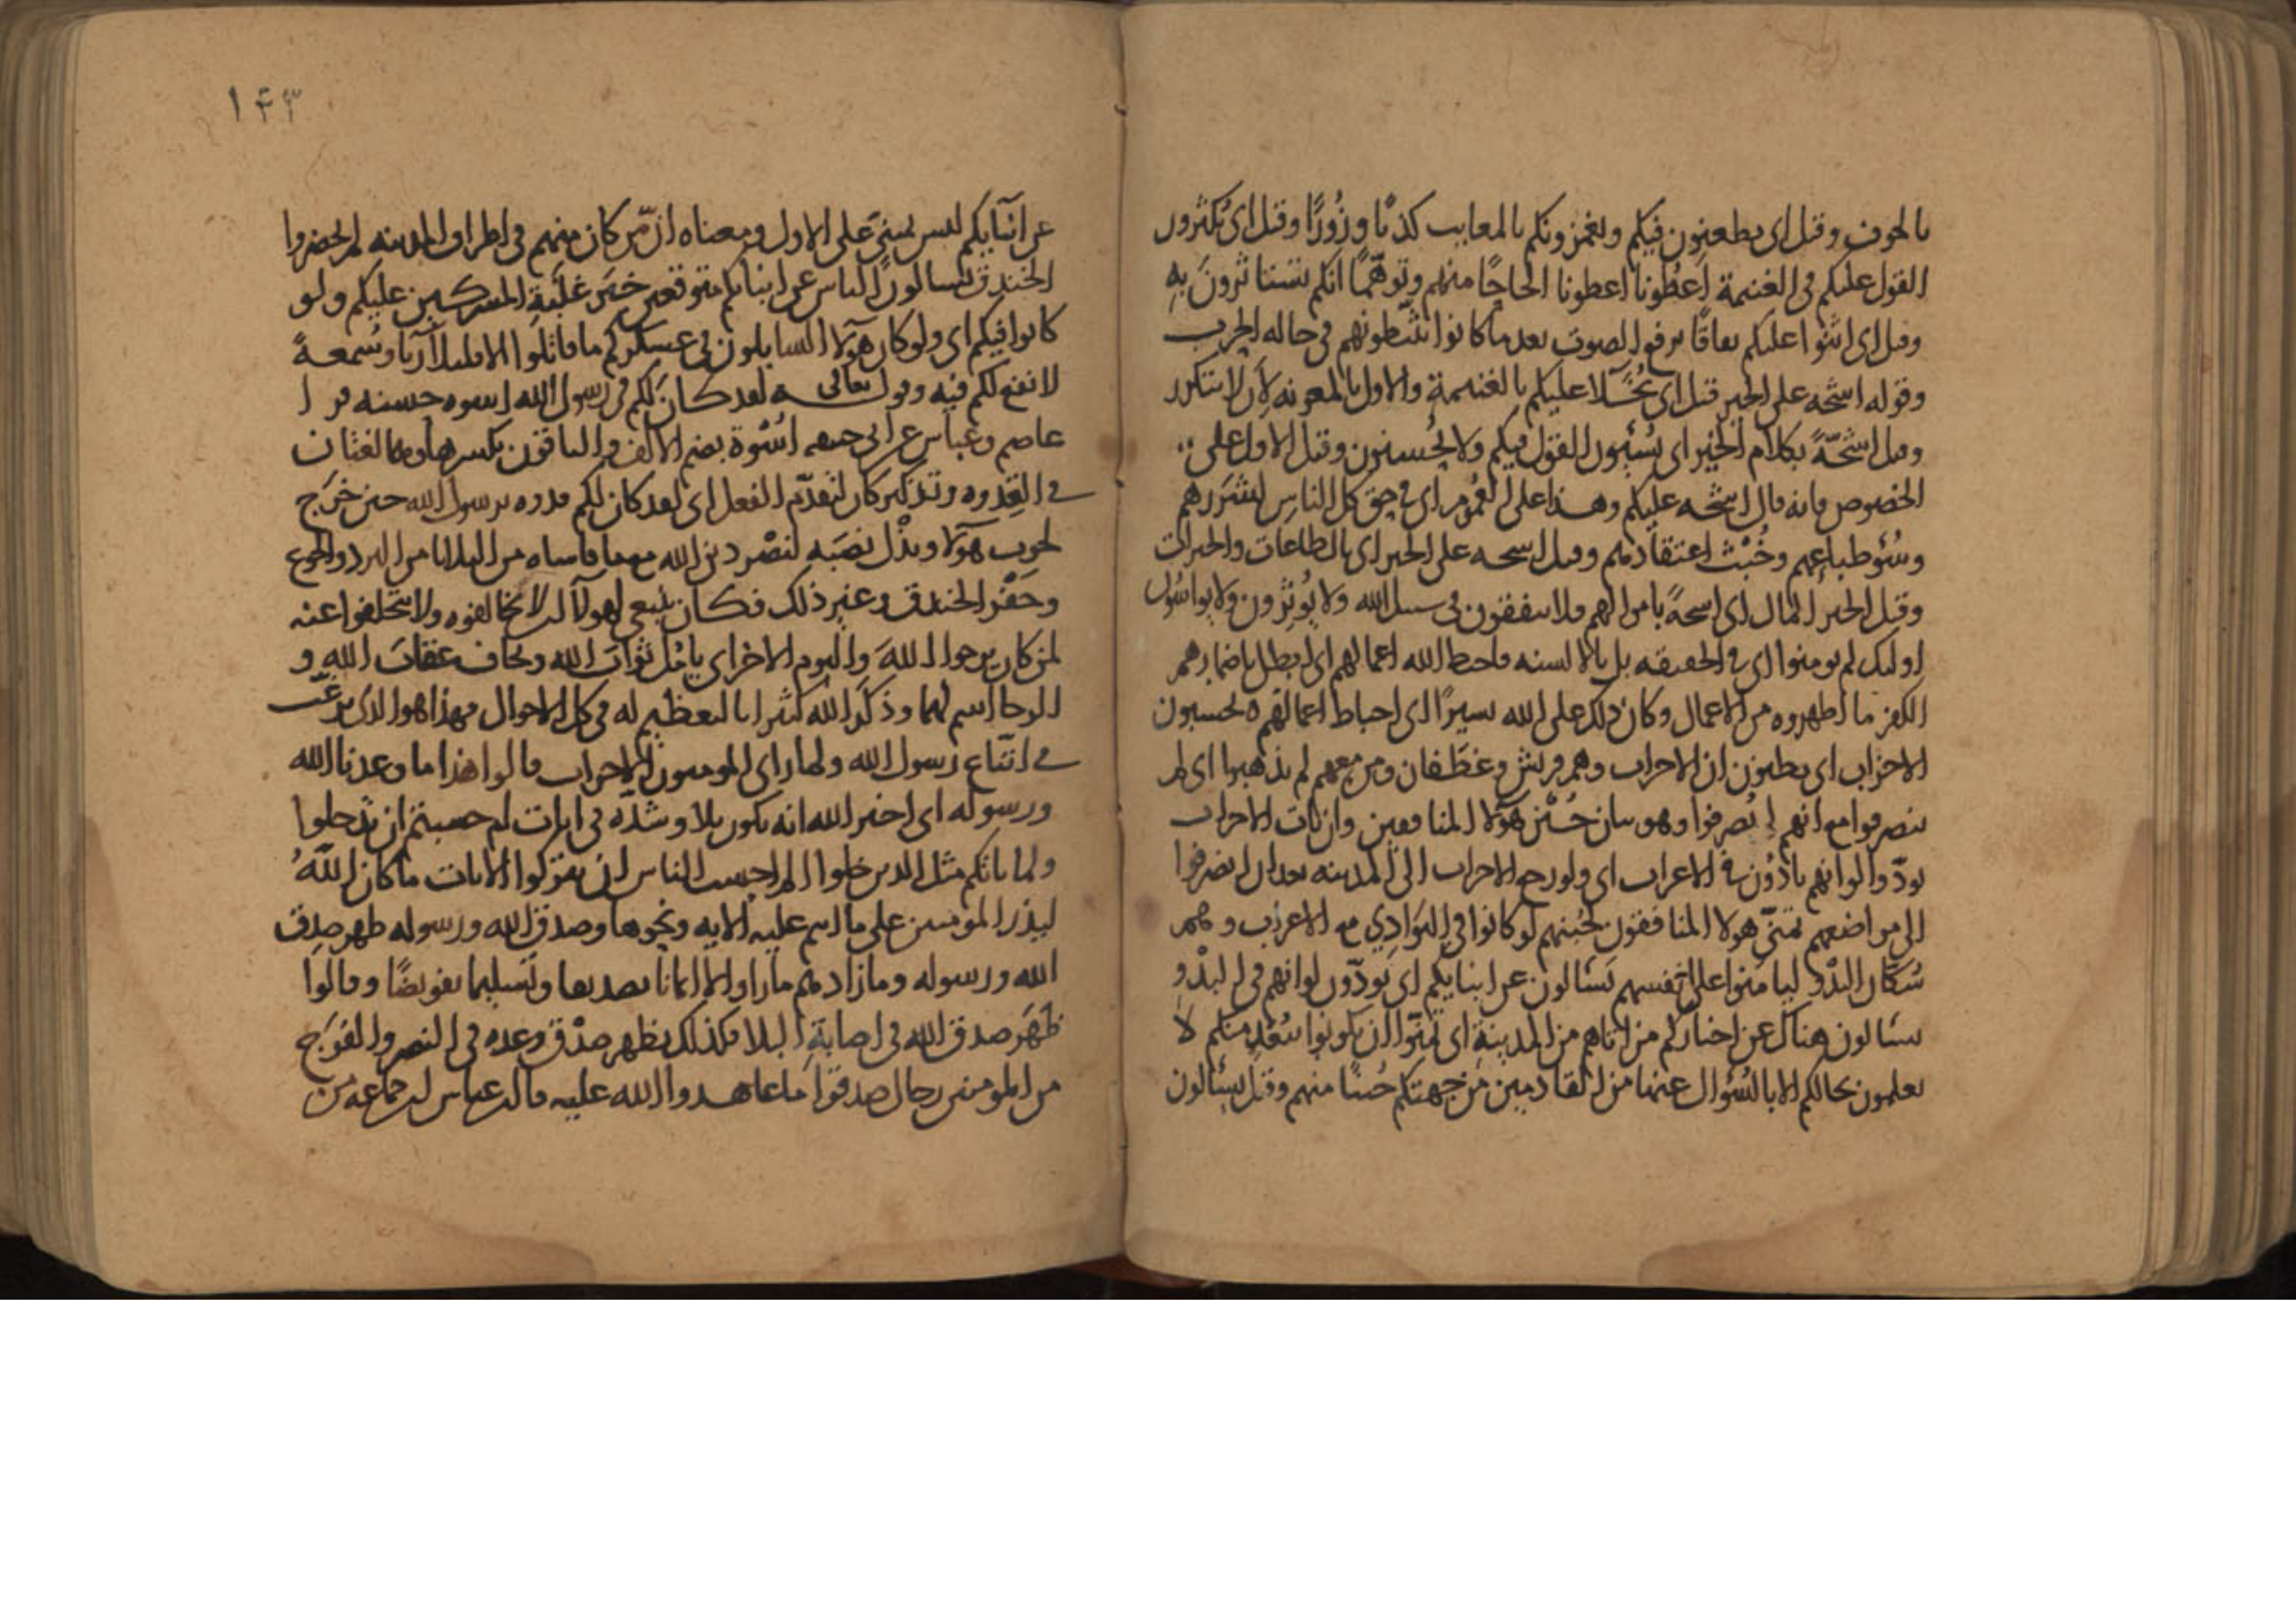 بالخوف وقيل اى يطعنون فيكم ويغمزونكم بالمعايب كذبًا وزُورًا وقيل اى يُكثرون
القول عليكم فى الغنيمة اَعطُونا اعطونا الحاحًا منهم وتوهّمًا انكم تستاثرونَ بهِ
وقيل اى اثنوا عليكم نفاقًا برفع الصوت بعد ما كانوا يثبّطونهم فى حاله الحرب
وقوله اشحّه على الخير قيل اى بُخَّلًا عليكم بالغنيمة والاول بالمعونه لِاَن لا يتكرر
وقيل اشحّةً بكلام الخير اى يُسيئون القول فيكم ولا يُحسنون وقيل الاول على
الخصوص فانه قال اشحه عليكم وهذا على العُموم اى فى حق كل الناس لشرَرهم
وسُوء طباعهم وخُبْث اعتقادهم وقيل اشحه على الخير اى بالطاعات والخيرات
وقيل الخير المال اى اشحةً باموالهم فلا ينفقون فى سبيل الله ولا يُوثرون ولا يواسُون
اوليك لم يومنوا اى فى الحقيقه بل بالالسنه فاحبط الله اعمالهم اى ابطل باضمارهم
الكفر ما اظهروه من الاعمال وكان ذلك على الله يسيرًا اى احباط اعمالهم ه يحسبون
الاحزاب اى يظنون ان الاحزاب وهم قريش وغطَفان ومن معهم لم يذهبوا اى لم
ينصرفوا مع انهم انصرفوا وهو بيان جُبْن هولآ المنافقين وان يات الاحزاب
يودّوا لو انهم بادُون فى الاعراب اى ولو رجع الاحزاب الى المدينه بعد ان انصرفوا
الى مواضعهم تمنّى هولا المنافقون لجُبنهم لو كانوا فى البَوَادِي مع الاعراب وهم
سُكّان البدْو ليامَنوا على انفسهم يَسَالون عن انبايكم اى يَودّون لو انهم فى البدْوِ
يسالون هناك عن اخباركم من اتاهم من المدينة اى تمنّوا ان يكونوا ببُعْد منكم لا
يعلمون بحالكم الا بالسُؤال عنها من القادمين مِن جهتكم جُبنًا منهم وقيل يسئالون
١٤٣
عن انبآيكم ليس يبنى على الاول ومعناه ان مَن كان منهم فى اطراف المدينه لم يحضروا
الخندق يتسالون الناس عن انبايكم متوقعين خبَر غلَبةِ المشركين عليكم ولو
كانوا فيكم اى ولو كان هولآ السايلون فى عسكركم ما قاتلوا الا قليلا رِيآ وسُمعةً
لا نفع لكم فيه وقوله تعالى لقد كان لكم فى رسول الله اسوه حسنه قرا
عاصم وعباس عن ابى عمرو اُسْوة بضم الالف والباقون بكسرها وهما لغتان
فى القِدوه وتذكير كان لتقدّم الفعل اى لقد كان لكم قدوه برسول الله حين خرَج
لحرب هولآ وبذْل نفسَه لنصْر دين الله مع ما قاساه من البلايا من البرد والجوع
وحَفْر الخندق وغير ذلك فكان ينبغى لهولآ ان لا يخالفوه ولا يتخلفوا عنه
لمن كان يرجوا اللهَ واليوم الاخر اى يامُل ثوابَ الله ويخاف عقابَ الله و
الرجا اسم لهما وذكَر الله كثيرا بالتعظيم له فى كل الاحوال فهذا هو الذى يرغَب
فى اتباع رسول الله ولما راى المومنون الاحزاب قالوا هذا ما وعدنا الله
ورسوله اى اخبر الله انه يكون بلا وشدّه فى ايات ام حسبتم ان تدخلوا
ولما ياتكم مثل الذين خلوا الم احسب الناس ان يتركوا الايات ما كان اللهُ
ليذر المومنين على ما انتم عليه الايه ونحوها وصدق الله ورسوله ظهر صدق
الله ورسوله وما زادهم ما راوا الا ايمانا تصديقا وتسليما تفويضًا وقالوا
ظهَر صدق الله فى اصابةِ البلا فكذلك يظهر صدْق وعده فى النصر والفرَج
من المومنين رجال صدقوا ما عاهدوا الله عليه قال ابن عباس ان جماعه من